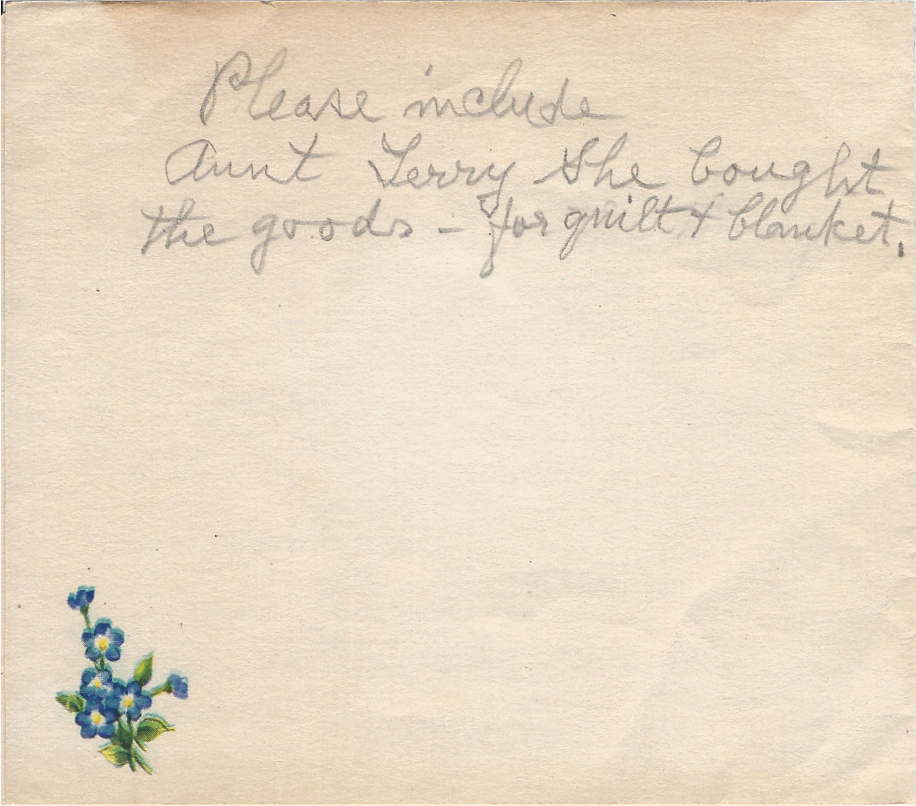 Please include
Aunt Terry She bought
the goods - for quilt & blanket.